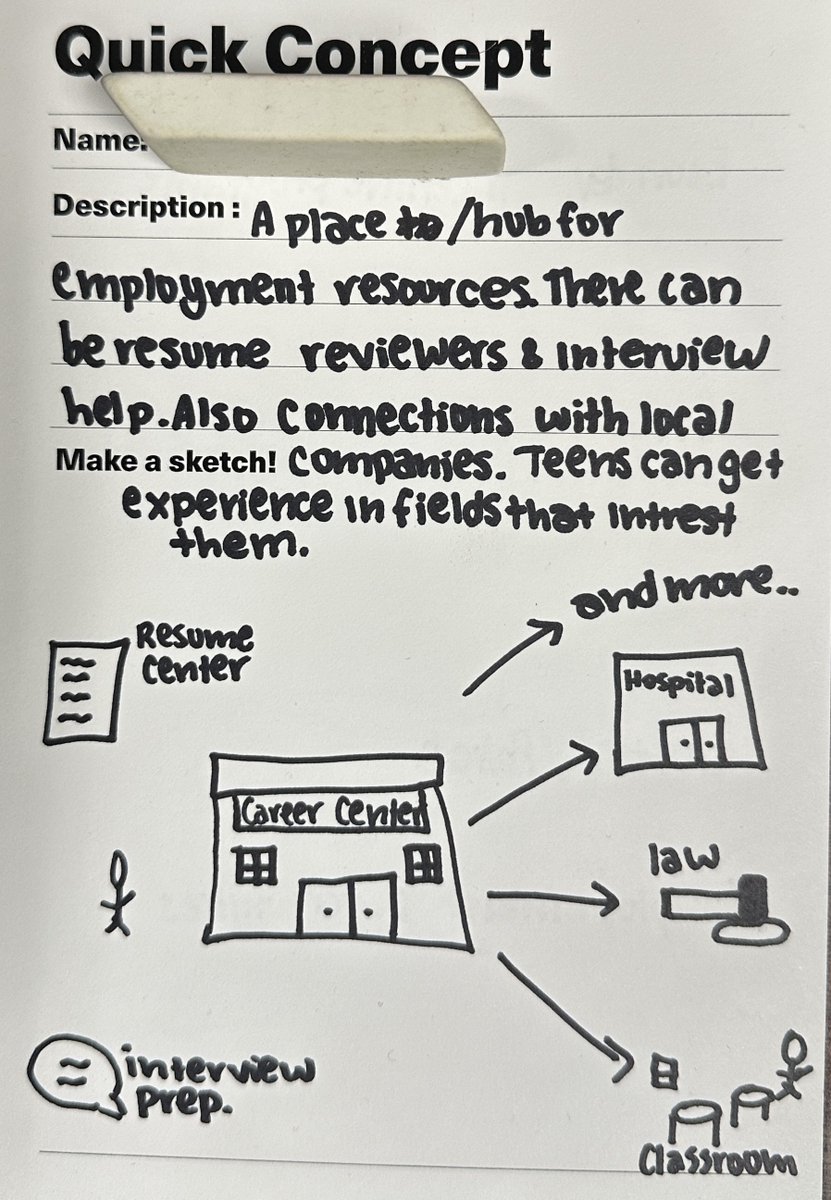 Quick Concept
Name:
Description: A place to/hub for
employment resources. There can
be resume reviewers & interview
help. Also connections with local
Make a sketch! companies. Teens can get
experience in fields that intrest
them.
and more..
Resume
center
Hospital
Career Center
law
interview
prep.
Classroom